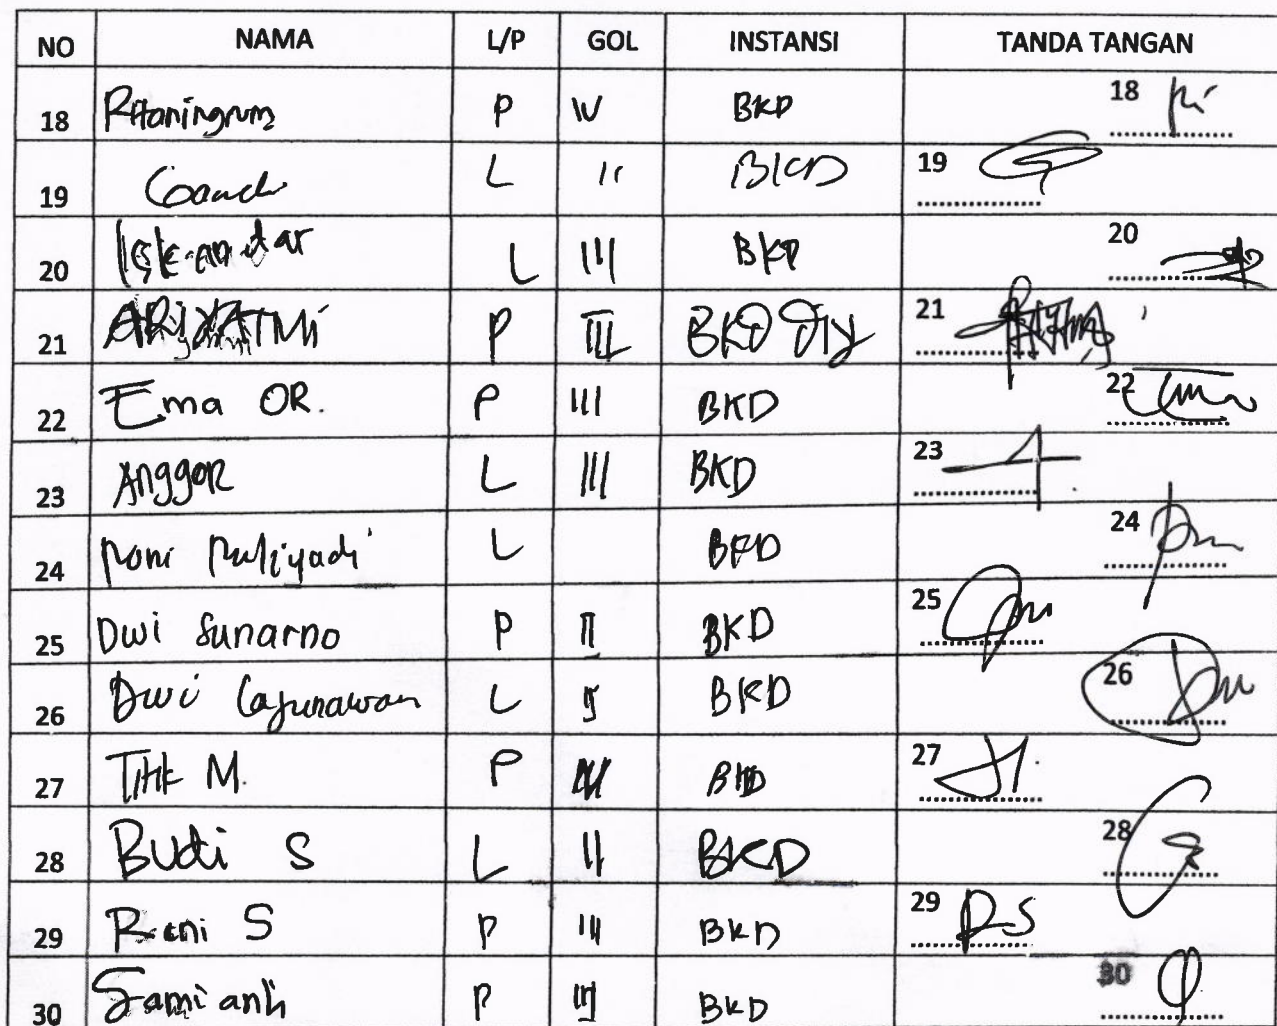 NO NAMA L/P GOL INSTANSI TANDA TANGAN
18 Rtaningrum P IV BKD 18
19 L 11 BKD 19
20 Iskandar L III BKD 20
21 ARIYATMI P III BKD DIY 21
22 Ema OR. P III BKD 22
23 Anggor L III BKD 23
24 Roni Muliyadi L BKD 24
25 Dwi Sunarno P II BKD 25
26 Dwi Cahunawan L II BKD 26
27 Titik M. P BKD 27
28 Budi S L II BKD 28
29 Reni S P III BKD 29 RS
30 P III BKD 30